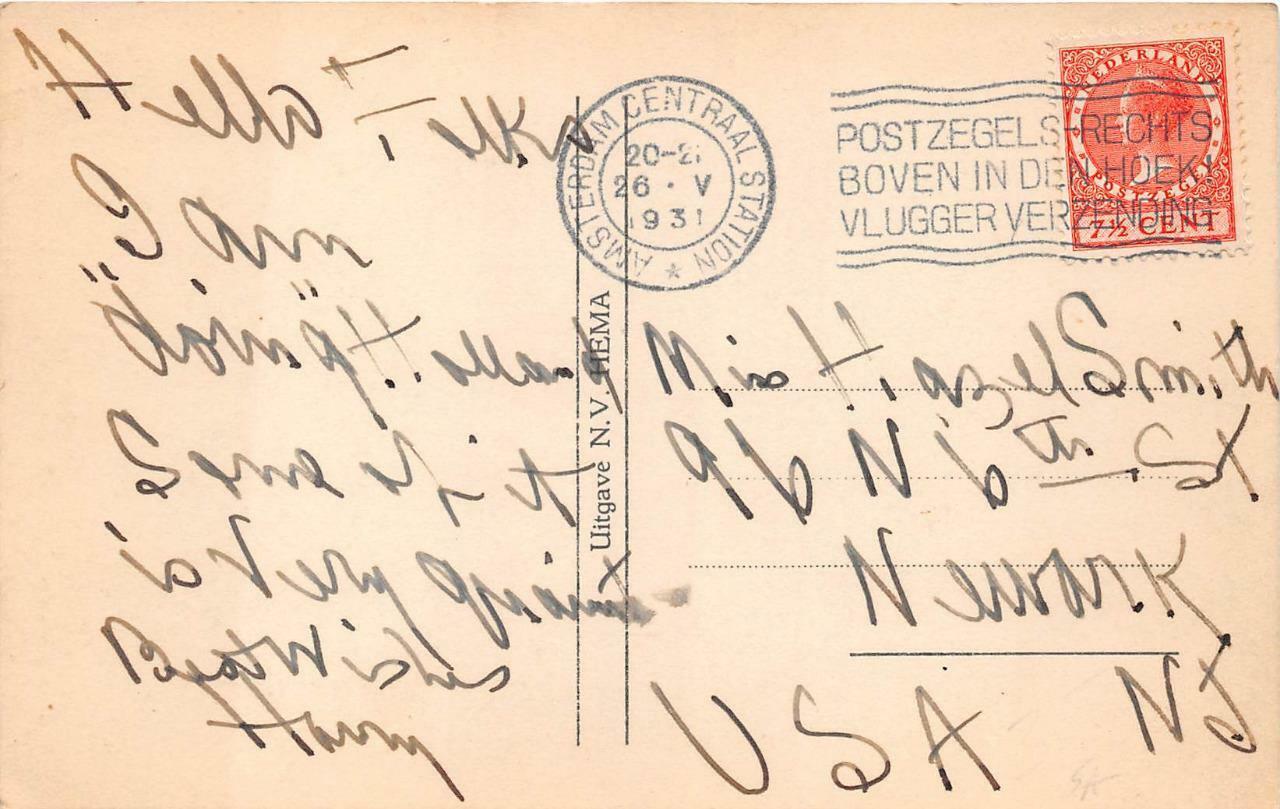 Hello Folks
I am
"doing" Holland
Some of it
is very quaint
Best Wishes
Harry
Uitgave N.V. HEMA
AMSTERDAM CENTRAAL STATION
20-21
26 · V
1931
POSTZEGELS RECHTS
BOVEN IN DEN HOEK!
VLUGGER VERZENDING
NEDERLAND
POSTZEGEL
7½ CENT
Miss Hazel Smith
96 N 6th St
Newark
NJ
USA